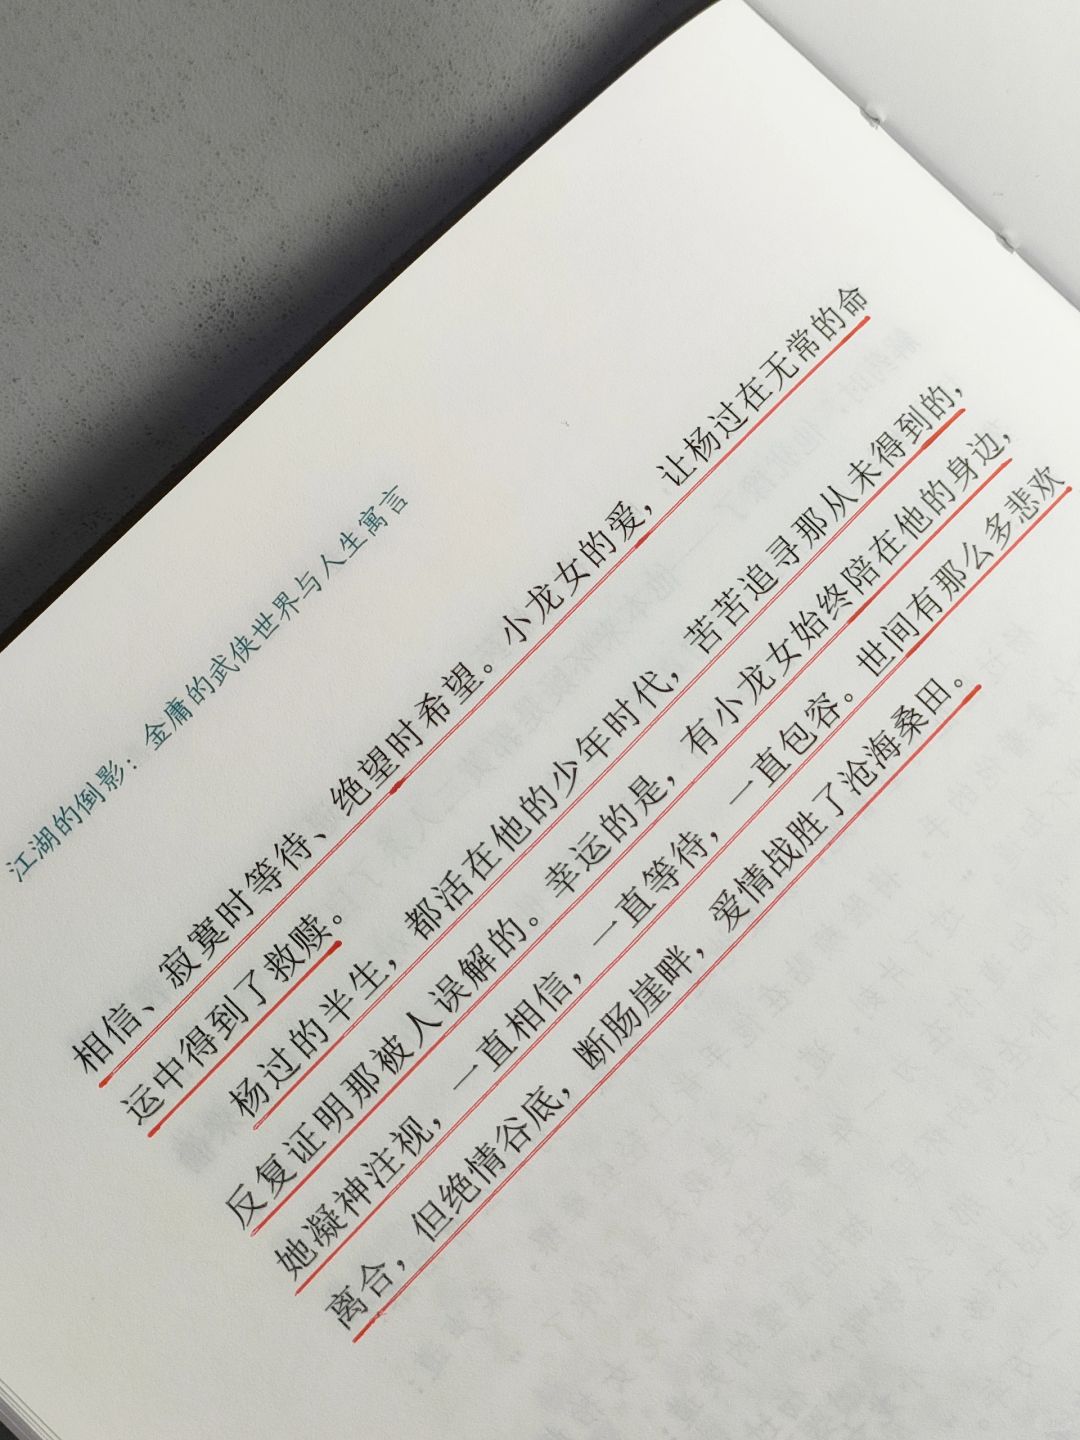 江湖的倒影：金庸的武侠世界与人生寓言
相信、寂寞时等待、绝望时希望。小龙女的爱，让杨过在无常的命
运中得到了救赎。
杨过的半生，都活在他的少年时代，苦苦追寻那从未得到的，
反复证明那被人误解的。幸运的是，有小龙女始终陪在他的身边，
她凝神注视，一直相信，一直等待，一直包容。世间有那么多悲欢
离合，但绝情谷底，断肠崖畔，爱情战胜了沧海桑田。